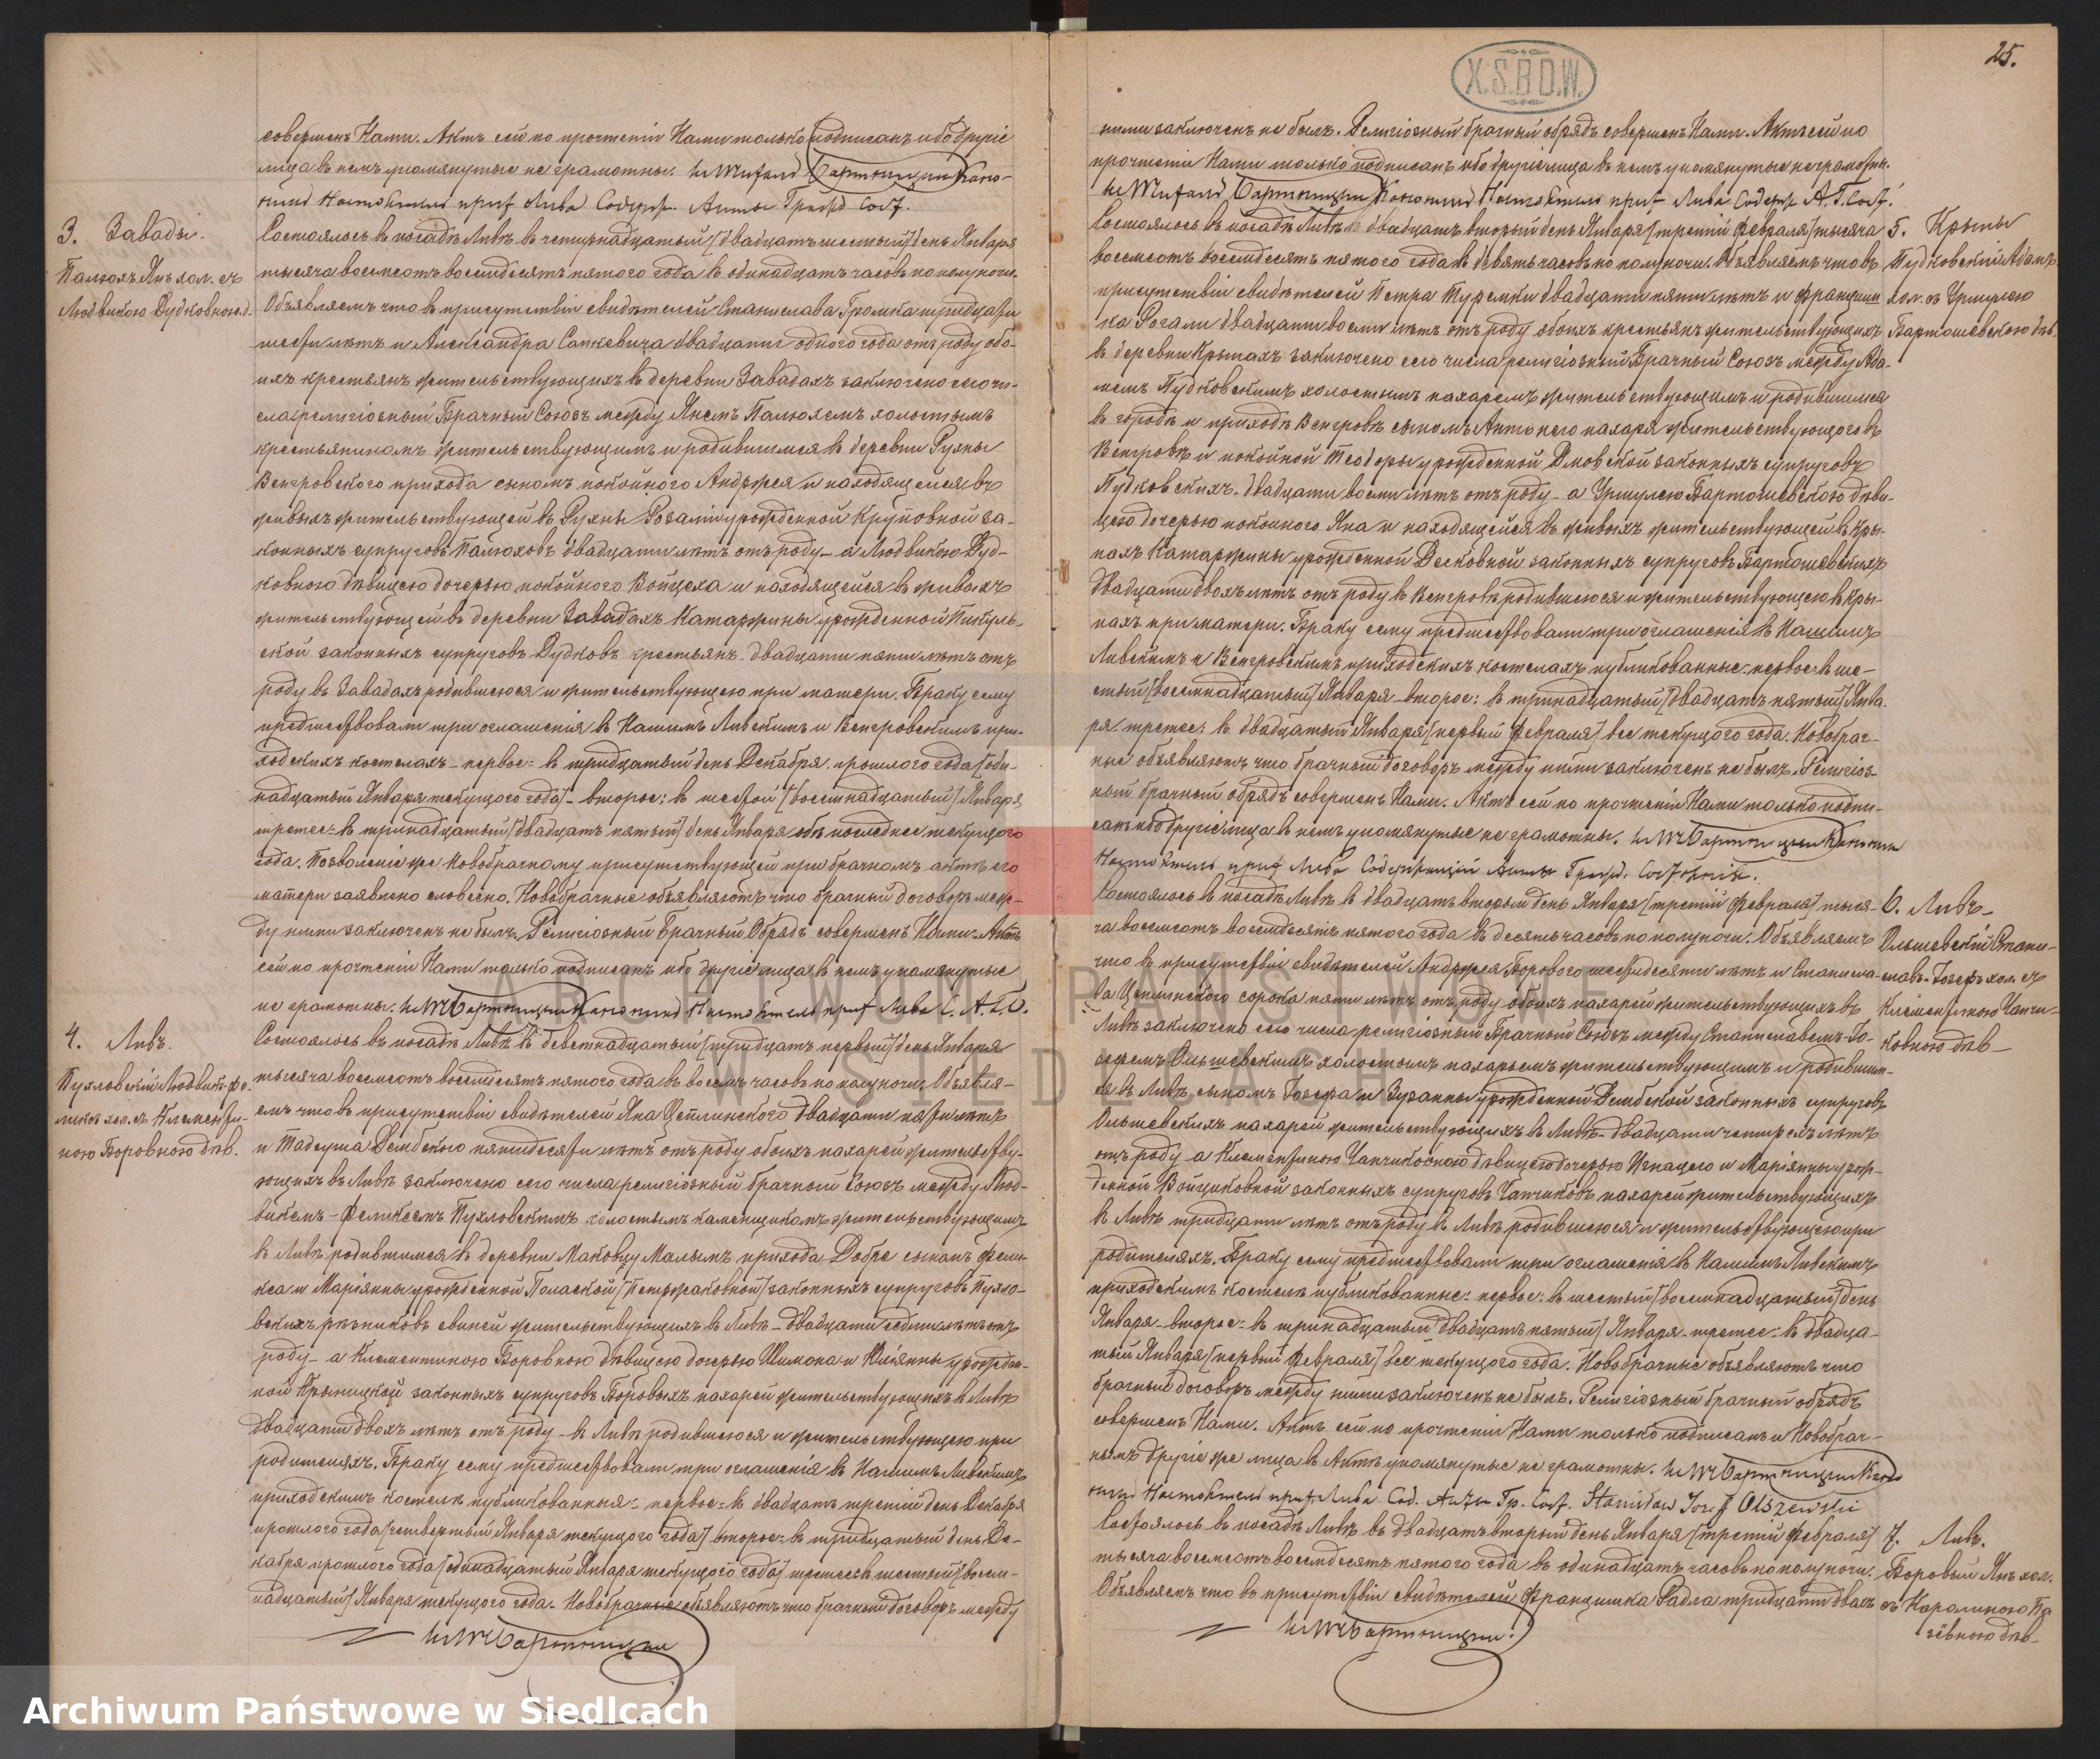 совершенъ Нами. Актъ сей по прочтеніи Нами только подписанъ ибо другіе
лица въ немъ упомянутые не грамотны.
3. Завады.
Палюхъ Янъ хол. съ
Людвикою Дудковною д.
Состоялось въ посадѣ Ливѣ въ четырнадцатый /двадцать шестый/ день Января
тысяча восемсотъ восемдесятъ пятого года въ одинадцать часовъ по полуночи.
Объявляемъ что въ присутствіи свидѣтелей Станислава Громка тридцати
шести лѣтъ и Александра Сапкевича двадцати одного года отъ роду обо-
ихъ крестьянъ жительствующихъ въ деревни Завадахъ заключено сего чи-
сла религіозный Брачный Союзъ между Яномъ Палюхемъ холостымъ
крестьяниномъ жительствующимъ и родившимся въ деревни Рухны
Венгровского прихода сыномъ покойного Андржея и находящейся въ
живыхъ жительствующей въ Рухны Розаліи урожденной Круповной за-
конныхъ супруговъ Палюховъ двадцати лѣтъ отъ роду – а Людвикою Дуд-
ковною дѣвицею дочерью покойного Войцеха и находящейся въ живыхъ
жительствующей въ деревни Завадахъ Катаржины урожденной Пикуль-
ской законныхъ супруговъ Дудковъ крестьянъ двадцати пяти лѣтъ отъ
роду въ Завадахъ родившеюся и жительствующею при матери. Браку сему
предшествовали три оглашенія въ Нашимъ Ливскимъ и Венгровскимъ при-
ходскихъ костелахъ – первое: въ тридцатый день Декабря прошлого года /оди-
надцатый Января текущого года/ – второе: въ шестой /восемнадцатый/ Января
третее: въ тринадцатый /двадцать пятый/ день Января обѣ последнее текущого
года. Позволеніе же новобрачному присутствующей при брачномъ актѣ его
матери заявлено словесно. Новобрачные объявляютъ что брачный договоръ меж-
ду ними заключенъ не былъ. Религіозный Брачный Обрядъ совершенъ Нами. Актъ
сей по прочтеніи Нами только подписанъ ибо другіе лица въ немъ упомянутые
не грамотны.
4. Ливъ.
Пухловскій Людвикъ-Фе-
ликсъ хол. съ Клементи-
ною Боровною дѣв.
Состоялось въ посадѣ Ливѣ въ девятнадцатый /тридцать первый/ день Января
тысяча восемсотъ восемдесятъ пятого года въ восемъ часовъ по полуночи. Объявля-
емъ что въ присутствіи свидѣтелей Яна Цеплинского двадцати пяти лѣтъ
и Тадеуша Дембского пятидесяти лѣтъ отъ роду обоихъ пахарей жительству-
ющихъ въ Ливѣ заключено сего числа религіозный брачный Союзъ между Люд-
викемъ-Феликсемъ Пухловскимъ холостымъ каменщикомъ жительствующимъ
въ Ливѣ родившимся въ деревни Маковцу Малымъ прихода Добре сыномъ Фели-
кса и Маріянны урожденной Полаской /Петржаковной/ законныхъ супруговъ Пухло-
вскихъ рѣзниковъ свиней жительствующихъ въ Ливѣ – двадцати седми лѣтъ отъ
роду – а Клементиною Боровною дѣвицею дочерью Шимона и Юліянны урожден-
ной Крыницкой законныхъ супруговъ Боровыхъ пахарей жительствующихъ въ Ливѣ
двадцати двохъ лѣтъ отъ роду – въ Ливѣ родившеюся и жительствующею при
родителяхъ. Браку сему предшествовали три оглашенія въ Нашимъ Ливскимъ
приходскимъ костелѣ публикованныя – первое: въ двадцать третій день Декабря
прошлого года /четвертый Января текущого года/ второе: въ тридцатый день Де-
кабря прошлого года /одинадцатый Января текущого года/ третее: въ шестый /восем-
надцатый/ Января текущого года. Новобрачные объявляютъ что брачный договоръ между
25.
X.S.B.D.W.
ними заключенъ не былъ. Религіозный брачный обрядъ совершенъ Нами. Актъ сей по
прочтеніи Нами только подписанъ ибо другіе лица въ немъ упомянутые не грамотны.
5. Крыпы
Пудковскій Адамъ
хол. съ Уршулею
Бартошевскою дѣв.
Состоялось въ посадѣ Ливѣ въ двадцать вторый день Января /третій Февраля/ тысяча
восемсотъ восемдесятъ пятого года въ девять часовъ по полуночи. Объявляемъ что въ
присутствіи свидѣтелей Петра Туремки двадцати пяти лѣтъ и Францишка
Рогали двадцати восми лѣтъ отъ роду обоихъ крестьянъ жительствующихъ
въ деревни Крыпахъ заключено сего числа религіозный Брачный Союзъ между Ада-
мемъ Пудковскимъ холостымъ пахаремъ жительствующимъ и родившимся
въ городѣ и приходѣ Венгровѣ сыномъ Антонего пахаря жительствующого въ
Венгровѣ и покойной Теодоры урожденной Дмовской законныхъ супруговъ
Пудковскихъ двадцати восми лѣтъ отъ роду – а Уршулею Бартошевскою дѣви-
цею дочерью покойного Яна и находящейся въ живыхъ жительствующей въ Кры-
пахъ Катаржины урожденной Десковной законныхъ супруговъ Бартошевскихъ
двадцати двохъ лѣтъ отъ роду въ Венгровѣ родившеюся и жительствующею въ Кры-
пахъ при матери. Браку сему предшествовали три оглашенія въ Нашимъ
Ливскимъ и Венгровскимъ приходскихъ костелахъ публикованные – первое: въ ше-
стый /восемнадцатый/ Января – второе: въ тринадцатый /двадцать пятый/ Янва-
ря третее: въ двадцатый Января /первый Февраля/ все текущого года. Новобрач-
ные объявляютъ что брачный договоръ между ними заключенъ не былъ. Религіоз-
ный брачный обрядъ совершенъ Нами. Актъ сей по прочтеніи Нами только подпи-
санъ ибо другіе лица въ немъ упомянутые не грамотны.
6. Ливъ
Ольшевскій Стани-
славъ-Іозефъ хол. съ
Клементиною Чапчи-
ковною дѣв–
Состоялось въ посадѣ Ливѣ въ двадцать вторый день Января /третій Февраля/ тыся-
ча восемсотъ восемдесятъ пятого года въ десять часовъ по полуночи. Объявляемъ
что въ присутствіи свидѣтелей Андржея Борового шестидесяти лѣтъ и Станисла-
ва Цеплинского сорока пяти лѣтъ отъ роду обоихъ пахарей жительствующихъ въ
Ливѣ заключено сего числа религіозный Брачный Союзъ между Станиславемъ-Іо-
зефемъ Ольшевскимъ холостымъ пахаремъ жительствующимъ и родившим-
ся въ Ливѣ сыномъ Іозефа и Зузанны урожденной Дембской законныхъ супруговъ
Ольшевскихъ пахарей жительствующихъ въ Ливѣ – двадцати четырехъ лѣтъ
отъ роду – а Клементиною Чапчиковною дѣвицею дочерью Игнацего и Маріянны урож-
денной Войциковной законныхъ супруговъ Чапчиковъ пахарей жительствующихъ
въ Ливѣ тридцати лѣтъ отъ роду въ Ливѣ родившеюся и жительствующею при
родителяхъ. Браку сему предшествовали три оглашенія въ Нашимъ Ливскимъ
приходскимъ костелѣ публикованные: первое: въ шестый /восемнадцатый/ день
Января – второе – въ тринадцатый /двадцать пятый/ Января – третее – въ двадца-
тый Января /первый Февраля/ все текущого года. Новобрачные объявляютъ что
брачный договоръ между ними заключенъ не былъ. Религіозный брачный обрядъ
совершенъ Нами. Актъ сей по прочтеніи Нами только подписанъ и Новобрач-
нымъ другіе же лица въ Актѣ упомянутые не грамотны.
Stanisław Josef Olszewski
7. Ливъ.
Боровый Янъ хол.
съ Каролиною Ба-
зёвною дѣв–
Состоялось въ посадѣ Ливѣ въ двадцать вторый день Января /третій Февраля/
тысяча восемсотъ восемдесятъ пятого года въ одинадцать часовъ по полуночи.
Объявляемъ что въ присутствіи свидѣтелей Францишка Радла тридцати двохъ
ARCHIWUM PAŃSTWOWE
W SIEDLCACH
Archiwum Państwowe w Siedlcach